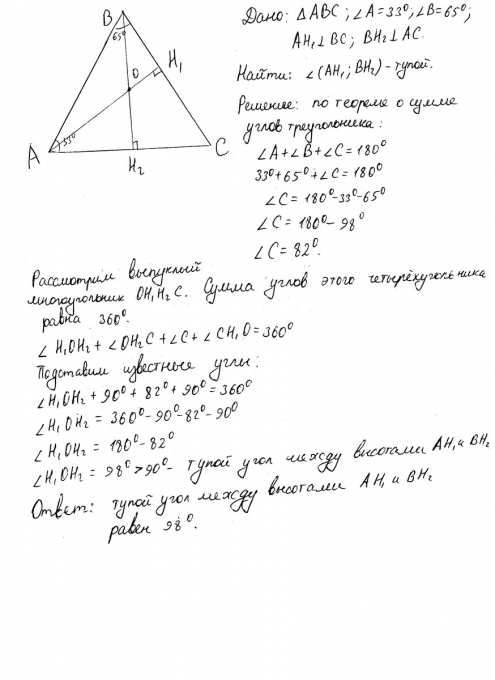 B
65°
H₁
O
33°
A
H₂
C
Дано: △ABC; ∠A=33°; ∠B=65°;
AH₁⊥BC; BH₂⊥AC.
Найти: ∠(AH₁; BH₂) - тупой.
Решение: по теореме о сумме
углов треугольника:
∠A+∠B+∠C=180°
33°+65°+∠C=180°
∠C=180°-33°-65°
∠C=180°-98°
∠C=82°.
Рассмотрим выпуклый
многоугольник OH₁H₂C. Сумма углов этого четырёхугольника
равна 360°.
∠H₁OH₂+∠OH₂C+∠C+∠CH₁O=360°
Подставим известные углы:
∠H₁OH₂+90°+82°+90°=360°
∠H₁OH₂=360°-90°-82°-90°
∠H₁OH₂=180°-82°
∠H₁OH₂=98°>90°- тупой угол между высотами AH₁ и BH₂
Ответ: тупой угол между высотами AH₁ и BH₂
равен 98°.